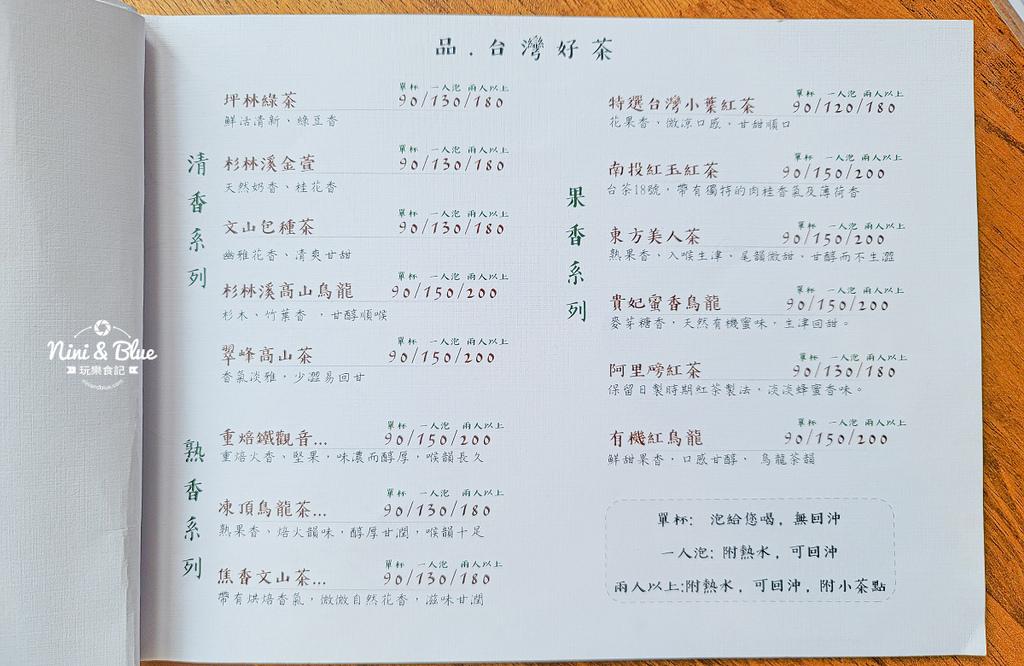 品.台灣好茶
清香系列
單杯 一人泡 兩人以上
坪林綠茶 90/130/180
鮮活清新、綠豆香
單杯 一人泡 兩人以上
杉林溪金萱 90/130/180
天然奶香、桂花香
單杯 一人泡 兩人以上
文山包種茶 90/130/180
幽雅花香、清爽甘甜
單杯 一人泡 兩人以上
杉林溪高山烏龍 90/150/200
杉木、竹葉香 ,甘醇順喉
單杯 一人泡 兩人以上
翠峰高山茶 90/150/200
香氣淡雅,少澀易回甘
熟香系列
單杯 一人泡 兩人以上
重焙鐵觀音... 90/150/200
重焙火香、堅果,味濃而醇厚,喉韻長久
單杯 一人泡 兩人以上
凍頂烏龍茶... 90/130/180
熟果香、焙火韻味,醇厚甘潤,喉韻十足
單杯 一人泡 兩人以上
焦香文山茶... 90/130/180
帶有烘焙香氣,微微自然花香,滋味甘潤
果香系列
單杯 一人泡 兩人以上
特選台灣小葉紅茶 90/120/180
花果香,微涼口感,甘甜順口
單杯 一人泡 兩人以上
南投紅玉紅茶 90/150/200
台茶18號,帶有獨特的肉桂香氣及薄荷香
單杯 一人泡 兩人以上
東方美人茶 90/150/200
熟果香、入喉生津、尾韻微甜、甘醇而不生澀
單杯 一人泡 兩人以上
貴妃蜜香烏龍 90/150/200
麥芽糖香,天然有機蜜味,生津回甜。
單杯 一人泡 兩人以上
阿里磅紅茶 90/130/180
保留日製時期紅茶製法,淡淡蜂蜜香味。
單杯 一人泡 兩人以上
有機紅烏龍 90/150/200
鮮甜果香,口感甘醇, 烏龍茶韻
單杯: 泡給您喝,無回沖
一人泡:附熱水,可回沖
兩人以上:附熱水,可回沖,附小茶點
Nini & Blue
玩樂食記